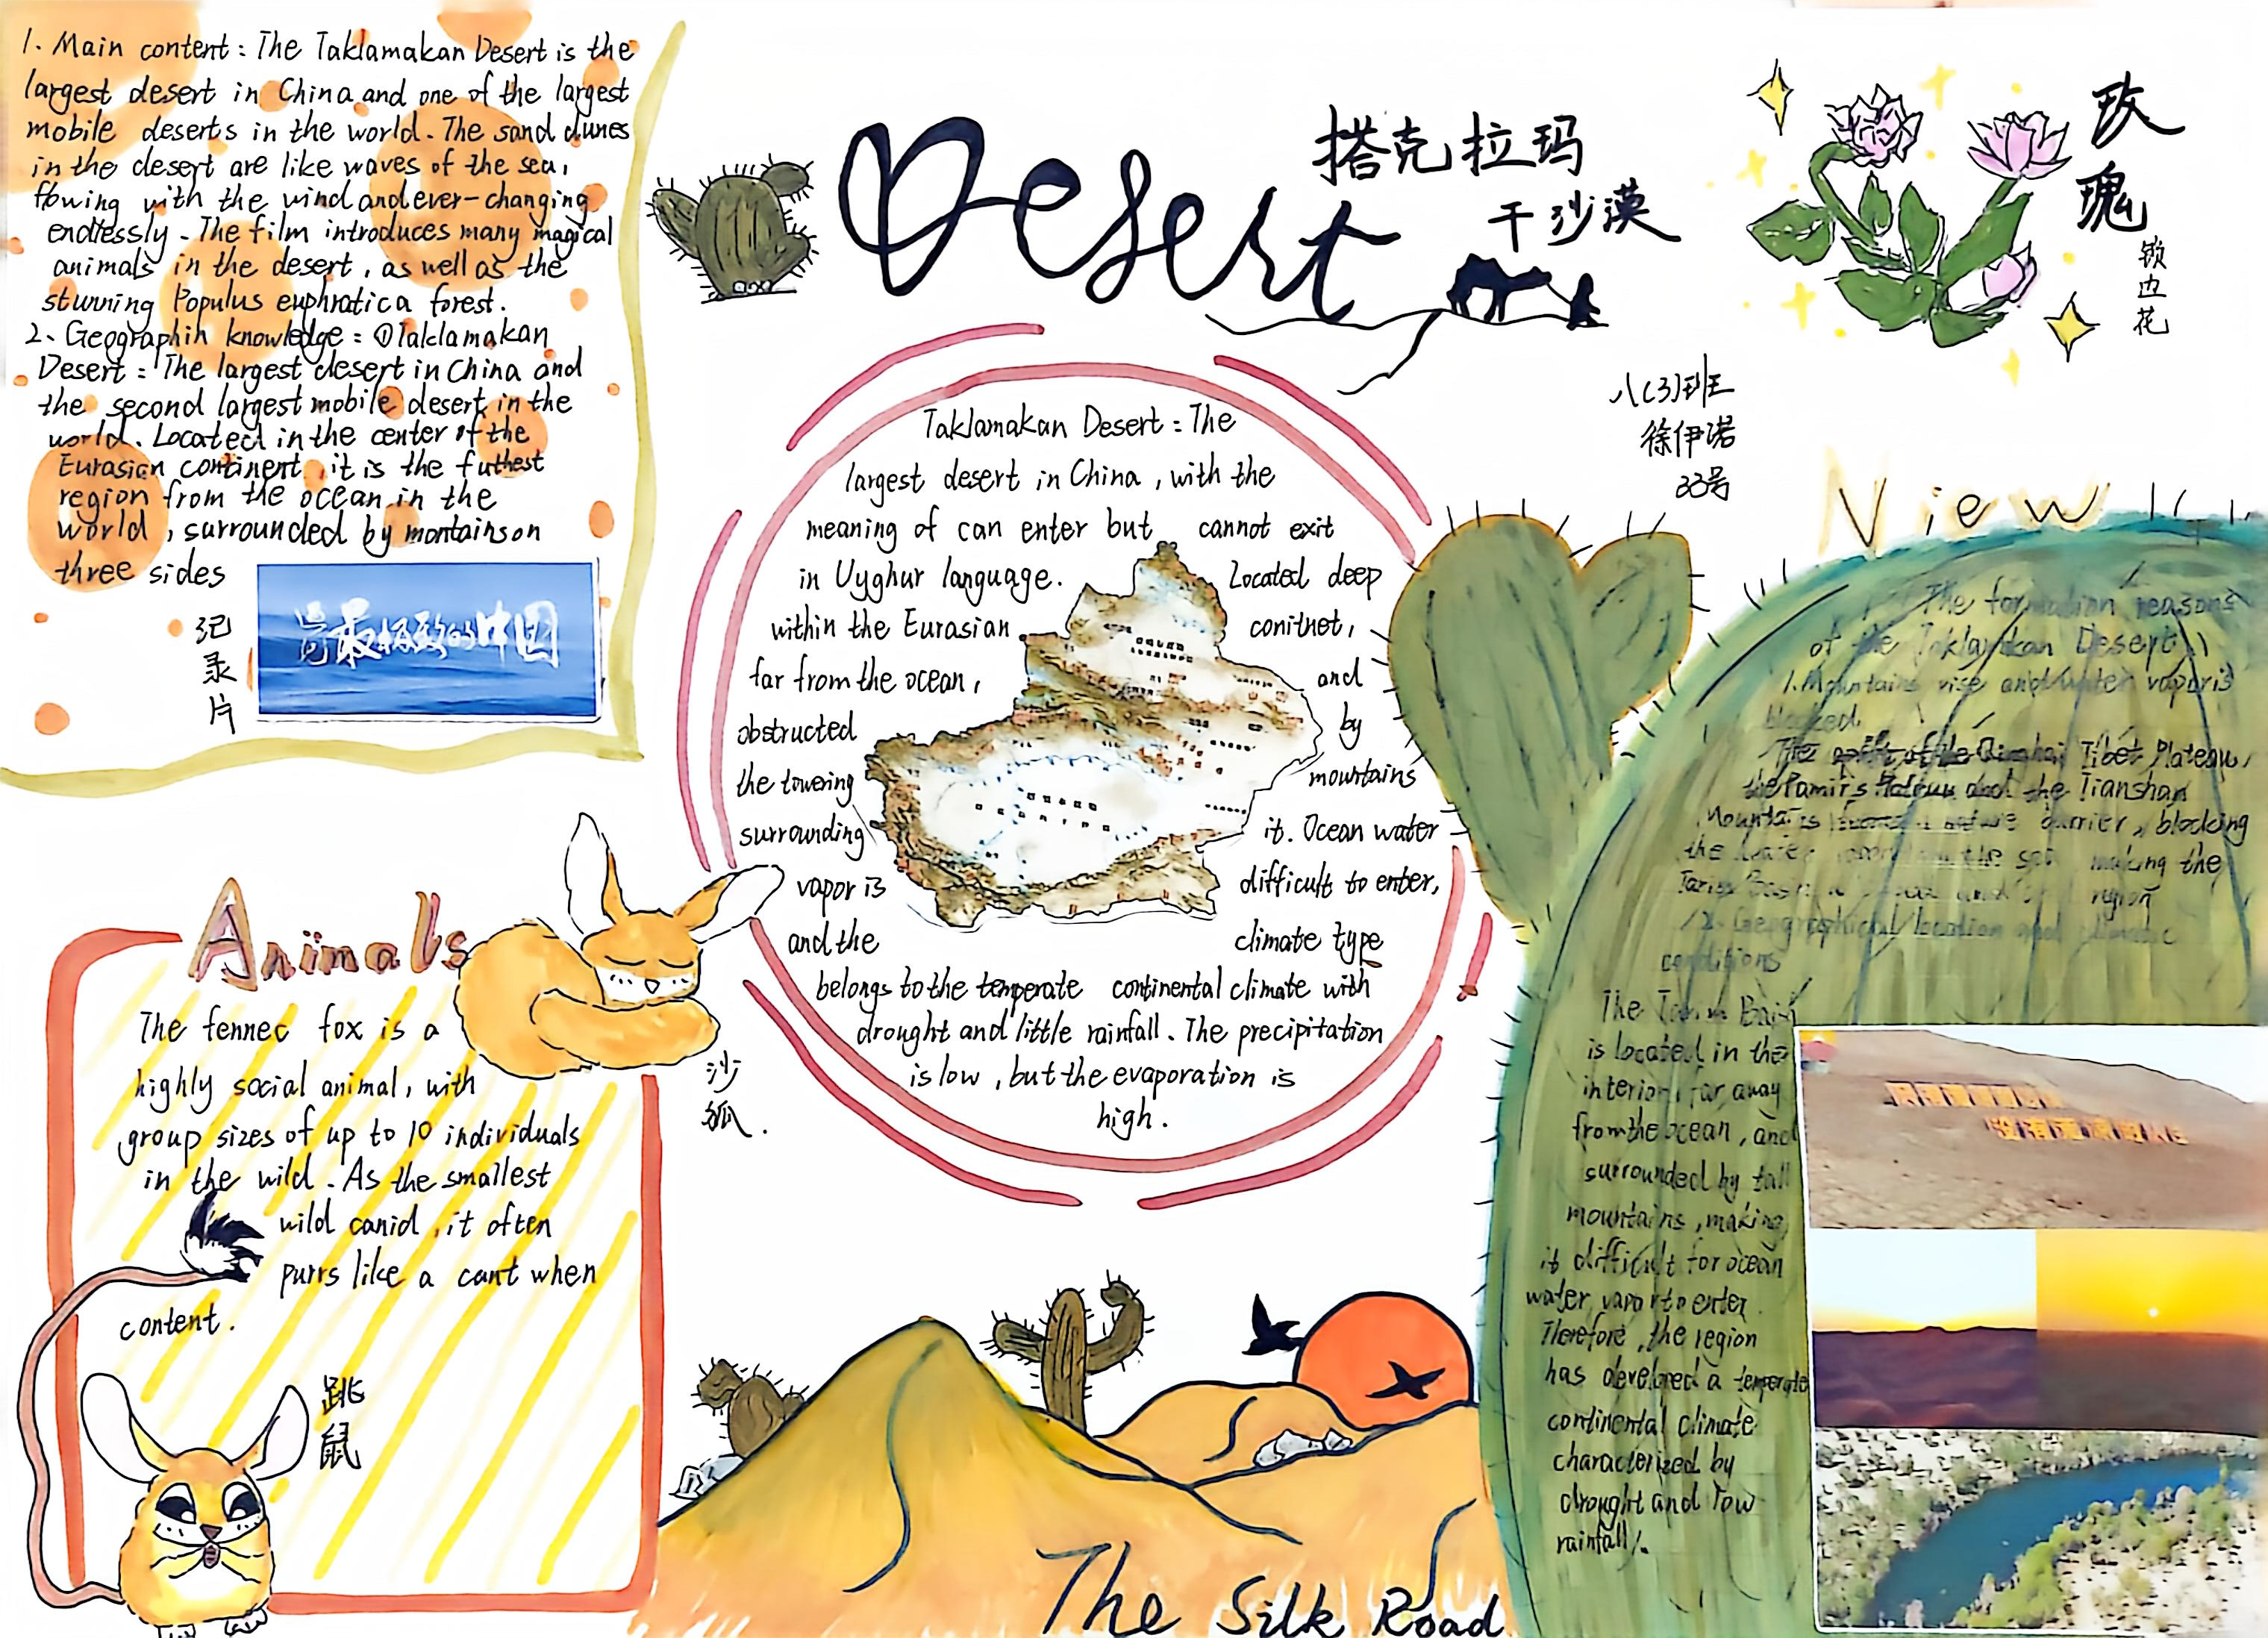 1. Main content: The Taklamakan Desert is the
largest desert in China and one of the largest
mobile deserts in the world. The sand dunes
in the desert are like waves of the sea,
flowing with the wind and ever-changing
endlessly. The film introduces many magical
animals in the desert, as well as the
stunning Populus euphratica forest.
2. Geographin knowledge: ①Taklamakan
Desert: The largest desert in China and
the second largest mobile desert in the
world. Located in the center of the
Eurasian continent, it is the futhest
region from the ocean in the
world, surrounded by montainson
three sides
纪录片
最极致的中国
Desert
搭克拉玛
干沙漠
玫瑰
锁边花
八(3)班
徐伊诺
33号
Taklamakan Desert: The
largest desert in China, with the
meaning of can enter but cannot exit
in Uyghur language. Located deep
within the Eurasian conitnet,
far from the ocean, and
obstructed by
the towering mountains
surrounding it. Ocean water
vapor is difficult to enter,
and the climate type
belongs to the temperate continental climate with
drought and little rainfall. The precipitation
is low, but the evaporation is
high.
Animals
The fennec fox is a
highly social animal, with
group sizes of up to 10 individuals
in the wild. As the smallest
wild canid, it often
purrs like a cant when
content.
沙狐.
跳鼠
The Silk Road
View
The formation reasons
of the Taklamakan Desert
1. Mountains rise and water vapor is
blocked
The Tibet Plateau,
the Pamirs and the Tianshan
Mountains barrier, blocking
the water making the
region
2. Geographical location and climatic
conditions
The Tarim Basin
is located in the
interior, far away
from the ocean, and
surrounded by tall
mountains, making
it difficult for ocean
water vapor to enter.
Therefore, the region
has developed a temperate
continental climate
characterized by
drought and low
rainfall.